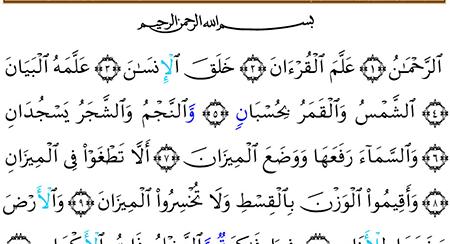 بسم الله الرحمن الرحيم
ٱلرَّحْمَـٰنُ ۝١ عَلَّمَ ٱلْقُرْءَانَ ۝٢ خَلَقَ ٱلْإِنسَـٰنَ ۝٣ عَلَّمَهُ ٱلْبَيَانَ
۝٤ ٱلشَّمْسُ وَٱلْقَمَرُ بِحُسْبَانٍ ۝٥ وَٱلنَّجْمُ وَٱلشَّجَرُ يَسْجُدَانِ
۝٦ وَٱلسَّمَآءَ رَفَعَهَا وَوَضَعَ ٱلْمِيزَانَ ۝٧ أَلَّا تَطْغَوْا۟ فِى ٱلْمِيزَانِ
۝٨ وَأَقِيمُوا۟ ٱلْوَزْنَ بِٱلْقِسْطِ وَلَا تُخْسِرُوا۟ ٱلْمِيزَانَ ۝٩ وَٱلْأَرْضَ